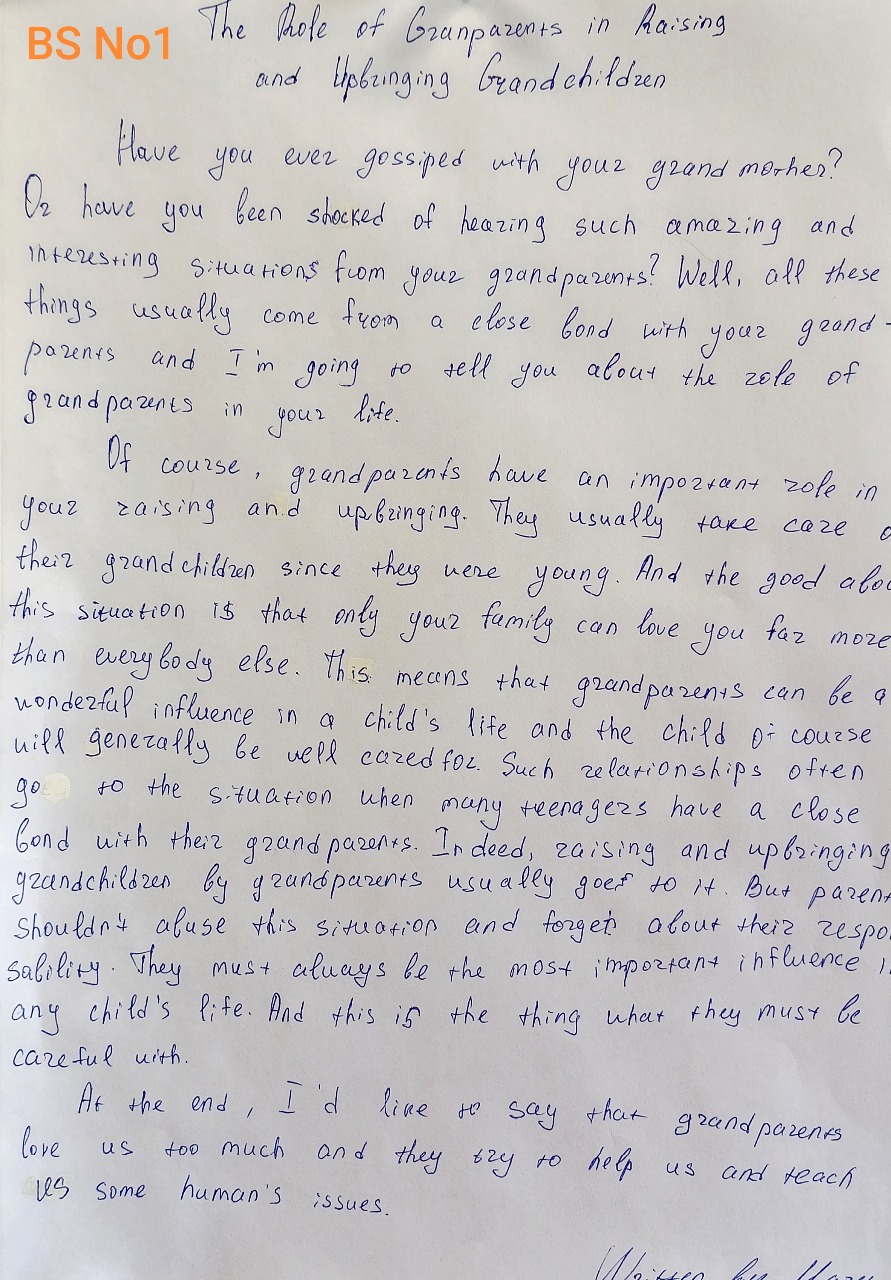 BS No1
The Role of Granparents in Raising
and Upbringing Grandchildren
Have you ever gossiped with your grandmother?
Or have you been shocked of hearing such amazing and
interesting situations from your grandparents? Well, all these
things usually come from a close bond with your grand-
parents and I'm going to tell you about the role of
grandparents in your life.
Of course, grandparents have an important role in
your raising and upbringing. They usually take care o
their grandchildren since they were young. And the good abou
this situation is that only your family can love you far more
than everybody else. This means that grandparents can be a
wonderful influence in a child's life and the child of course
will generally be well cared for. Such relationships often
go to the situation when many teenagers have a close
bond with their grandparents. Indeed, raising and upbringing
grandchildren by grandparents usually goes to it. But parent
shouldn't abuse this situation and forget about their respo
sability. They must always be the most important influence i
any child's life. And this is the thing what they must be
careful with.
At the end, I'd like to say that grandparents
love us too much and they try to help us and teach
us some human's issues.
Written by